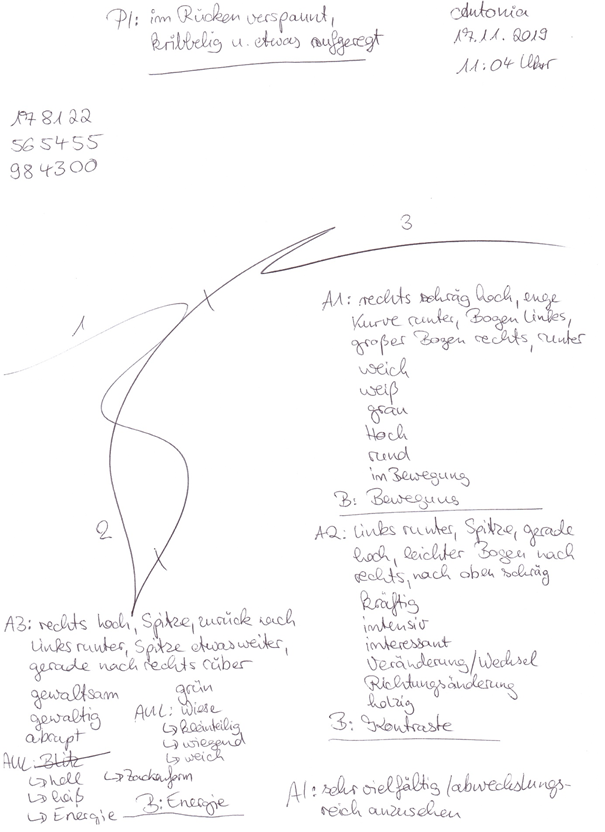 PI: im Rücken verspannt,
kribbelig u. etwas aufgeregt
Antonia
17.11.2019
11:04 Uhr
178122
565455
984300
3
1
2
A1: rechts schräg hoch, enge
Kurve runter, Bogen links,
großer Bogen rechts, runter
weich
weiß
grau
Hoch
rund
im Bewegung
B: Bewegung
A2: Links runter, Spitze, gerade
hoch, leichter Bogen nach
rechts, nach oben schräg
kräftig
intensiv
interessant
Veränderung/Wechsel
Richtungsänderung
holzig
B: Kontraste
A3: rechts hoch, Spitze, zurück nach
Links runter, Spitze etwas weiter,
gerade nach rechts rüber
gewaltsam
gewaltig
abrupt
AUL: Blitz
↳ hell
↳ heiß
↳ Energie
↳ Zackenform
grün
AUL: Wiese
↳ kleinteilig
↳ wiegend
↳ weich
B: Energie
AI: sehr vielfältig/abwechslungs-
reich anzusehen